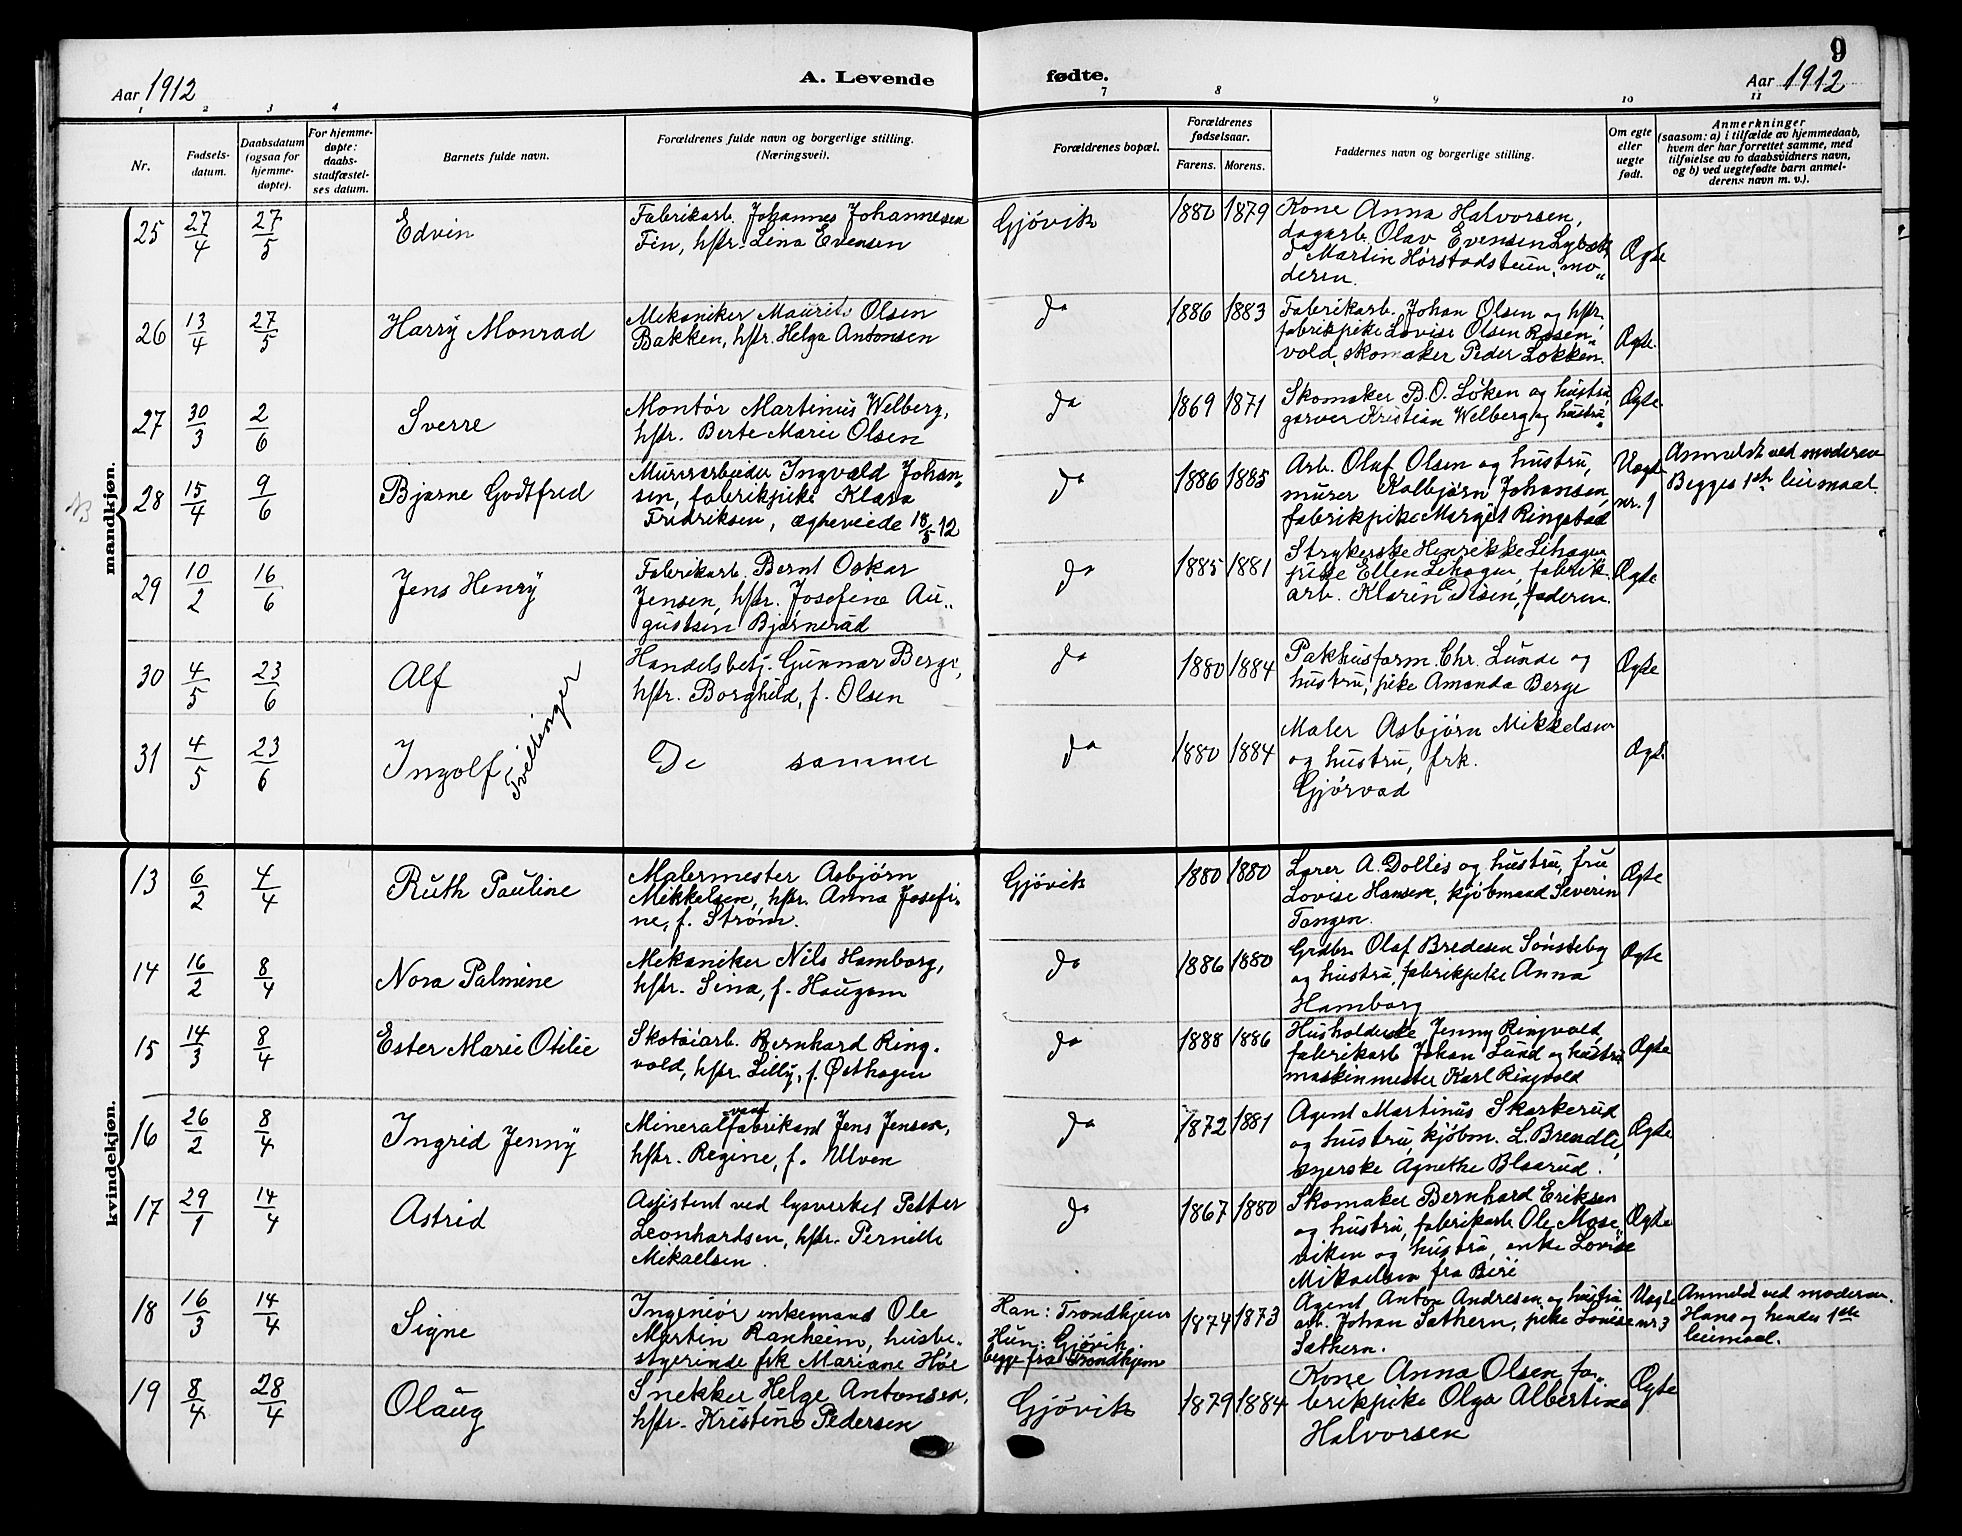 9
Aar 1912
A. Levende fødte.
Aar 1912
1 2 3 4 7 8 9 10 11
Nr.
Fødsels-
datum.
Daabsdatum
(ogsaa for
hjemme-
døpte).
For hjemme-
døpte:
daabs-
stadfæstel-
ses datum.
Barnets fulde navn.
Forældrenes fulde navn og borgerlige stilling.
(Næringsvei).
Forældrenes bopæl.
Forældrenes
fødselsaar.
Farens. Morens.
Faddernes navn og borgerlige stilling.
Om egte
eller
uegte
født.
Anmerkninger
(saasom: a) i tilfælde av hjemmedaab,
hvem der har forrettet samme, med
tilføielse av to daabsvidners navn,
og b) ved uegtefødte barn anmel-
derens navn m. v.).
mandkjøn.
25 27/4 27/5 Edvin
Fabrikarb. Johannes Johannesen
Fin, hstr. Lina Evensen
Gjövik 1880 1879
Kone Anna Halvorsen,
dagarb. Olav Evensen
Martin Hørstadsteien, mo„
deren.
Ægte
26 13/4 27/5 Harry Monrad
Mekaniker Maurits Olsen
Bakken, hstr. Helga Antonsen
do 1886 1883
Fabrikarb. Johan Olsen og hstr,
fabrikpike Lovise Olsen Rosen„
vold, skomaker Peder Løkken.
Ægte.
27 30/3 2/6 Sverre
Montør Martinus Welberg,
hstr. Berte Marie Olsen
do 1869 1871
Skomaker B. O. Löken og hustru,
garver Kristian Welberg og hustru„
Ægte.
NB
28 15/4 9/6 Bjarne Godtfred
Murerarbeider Ingvald Johan„
sen, fabrikpike Klara
Fridriksen, ægteviede 18/5 12
do 1886 1885
Arb. Olaf Olsen og hustru,
murer Kolbjørn Johansen,
fabrikpike Margit Ringstad
Uegte
nr. 1
Anmeldt ved moderen
Begges 1ste leiermaal.
29 10/2 16/6 Jens Henry
Fabrikarb. Bernt Oskar
Jensen, hstr. Josefine Au„
gustsen Bjørnerud
do 1885 1881
Strykerske Henrikke Lihagen
pike Ellen Lihagen, fabrik.
arb. Klarin Olsen, faderen.
Ægte
30 4/5 23/6 Alf
Handelsbetj. Gunnar Berge,
hstr. Borghild, f. Olsen
do 1880 1884
Pakhusform. Chr. Lunde og
hustru, pike Amanda Berge
Ægte
Tvillinger
31 4/5 23/6 Ingolf
De samme
do 1880 1884
Maler Asbjørn Mikkelsen
og hustru, frk.
Gjørvad
Ægte
kvindekjøn.
13 6/2 4/4 Ruth Pauline
Malermester Asbjørn
Mikkelsen, hstr. Anna Josefi„
ne, f. Strøm.
Gjövik 1880 1880
Lærer A. Dollis og hustru, fru
Lovise Hansen, kjöbmand Severin
Tangen.
Ægte
14 16/2 8/4 Nora Palmine
Mekaniker Nils Hamborg,
hstr. Sina, f. Haugom
do 1886 1880
Grdbr. Olaf Bredesen Sönsteby
og hustru, fabrikpike Anna
Hamborg
Ægte
15 14/3 8/4 Ester Marie Otilie
Skotöiarb. Bernhard Ring.
vold, hstr. Lilly, f. Østhagen
do 1888 1886
Husholderske Jenny Ringvold,
fabrikarb. Johan Lund og hustru
maskinmester Karl Ringvold
Ægte
16 26/2 8/4 Ingrid Jenny
Mineralvandfabrikant Jens Jensen,
hstr. Regine, f. Ulven
do 1872 1881
Agent Martinus Skarkerud
og hustru, kjöbm. L. Brendli,
syerske Agnethe Blaarud.
Ægte
17 29/1 14/4 Astrid
Assistent ved lysverket Petter
Leonhardsen, hstr. Pernille
Mikaelsen.
do 1867 1880
Skomaker Bernhard Eriksen
og hustru, fabrikarb. Ole Mose„
viken og hustru, enke Lovise
Mikaelsen fra Biri
Ægte
18 16/3 14/4 Signe
Ingeniör enkemand Ole
Martin Ranheim, husbe„
styrerinde frk Mariane Høe
Han: Trondhjem
Hun: Gjövik.
begge fra Trondhjem
1874 1873
Agent Anton Andresen og hustru
arb. Johan Sathern, pike Lovise
Sathern.
Uegte
nr 3
Anmeldt ved moderen.
Hans og hendes 1ste
leiermaal.
19 8/4 28/4 Olaug
Snekker Helge Antonsen,
hstr. Kristine Pedersen
Gjövik 1879 1884
Kone Anna Olsen, fa„
brikpike Olga Albertine
Halvorsen
Ægte